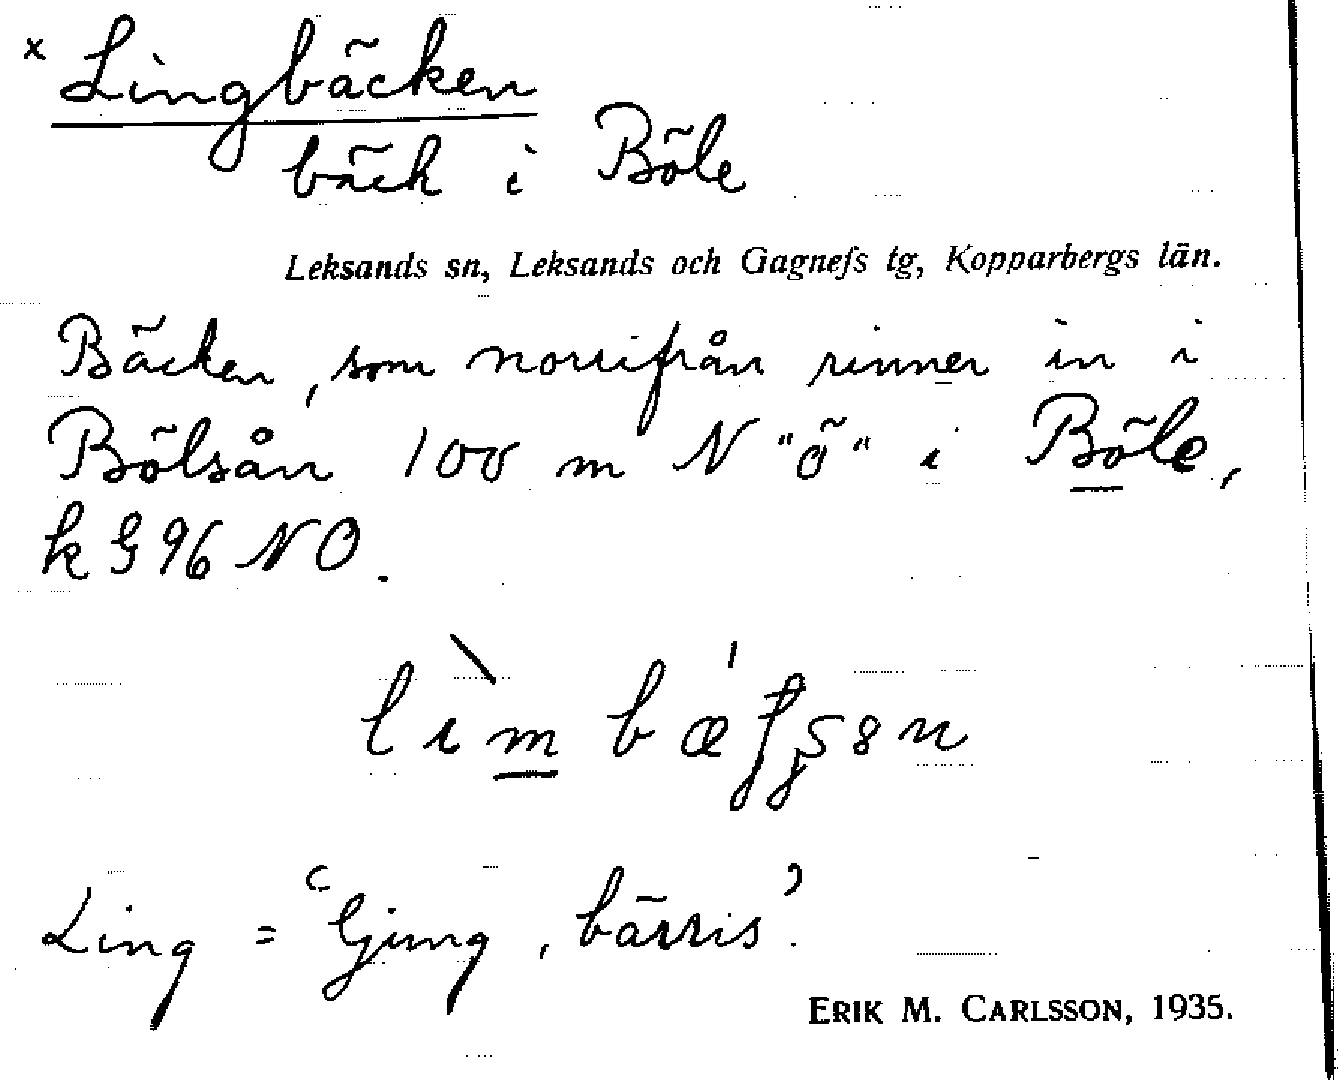 x Lingbäcken
bäck i Böle
Leksands sn, Leksands och Gagnefs tg, Kopparbergs län.
Bäcken, som norrifrån rinner in i
Bölsån 100 m N "ö" i Böle,
k G 96 NO.
Ling = 'ljung, bärris'.
ERIK M. CARLSSON, 1935.